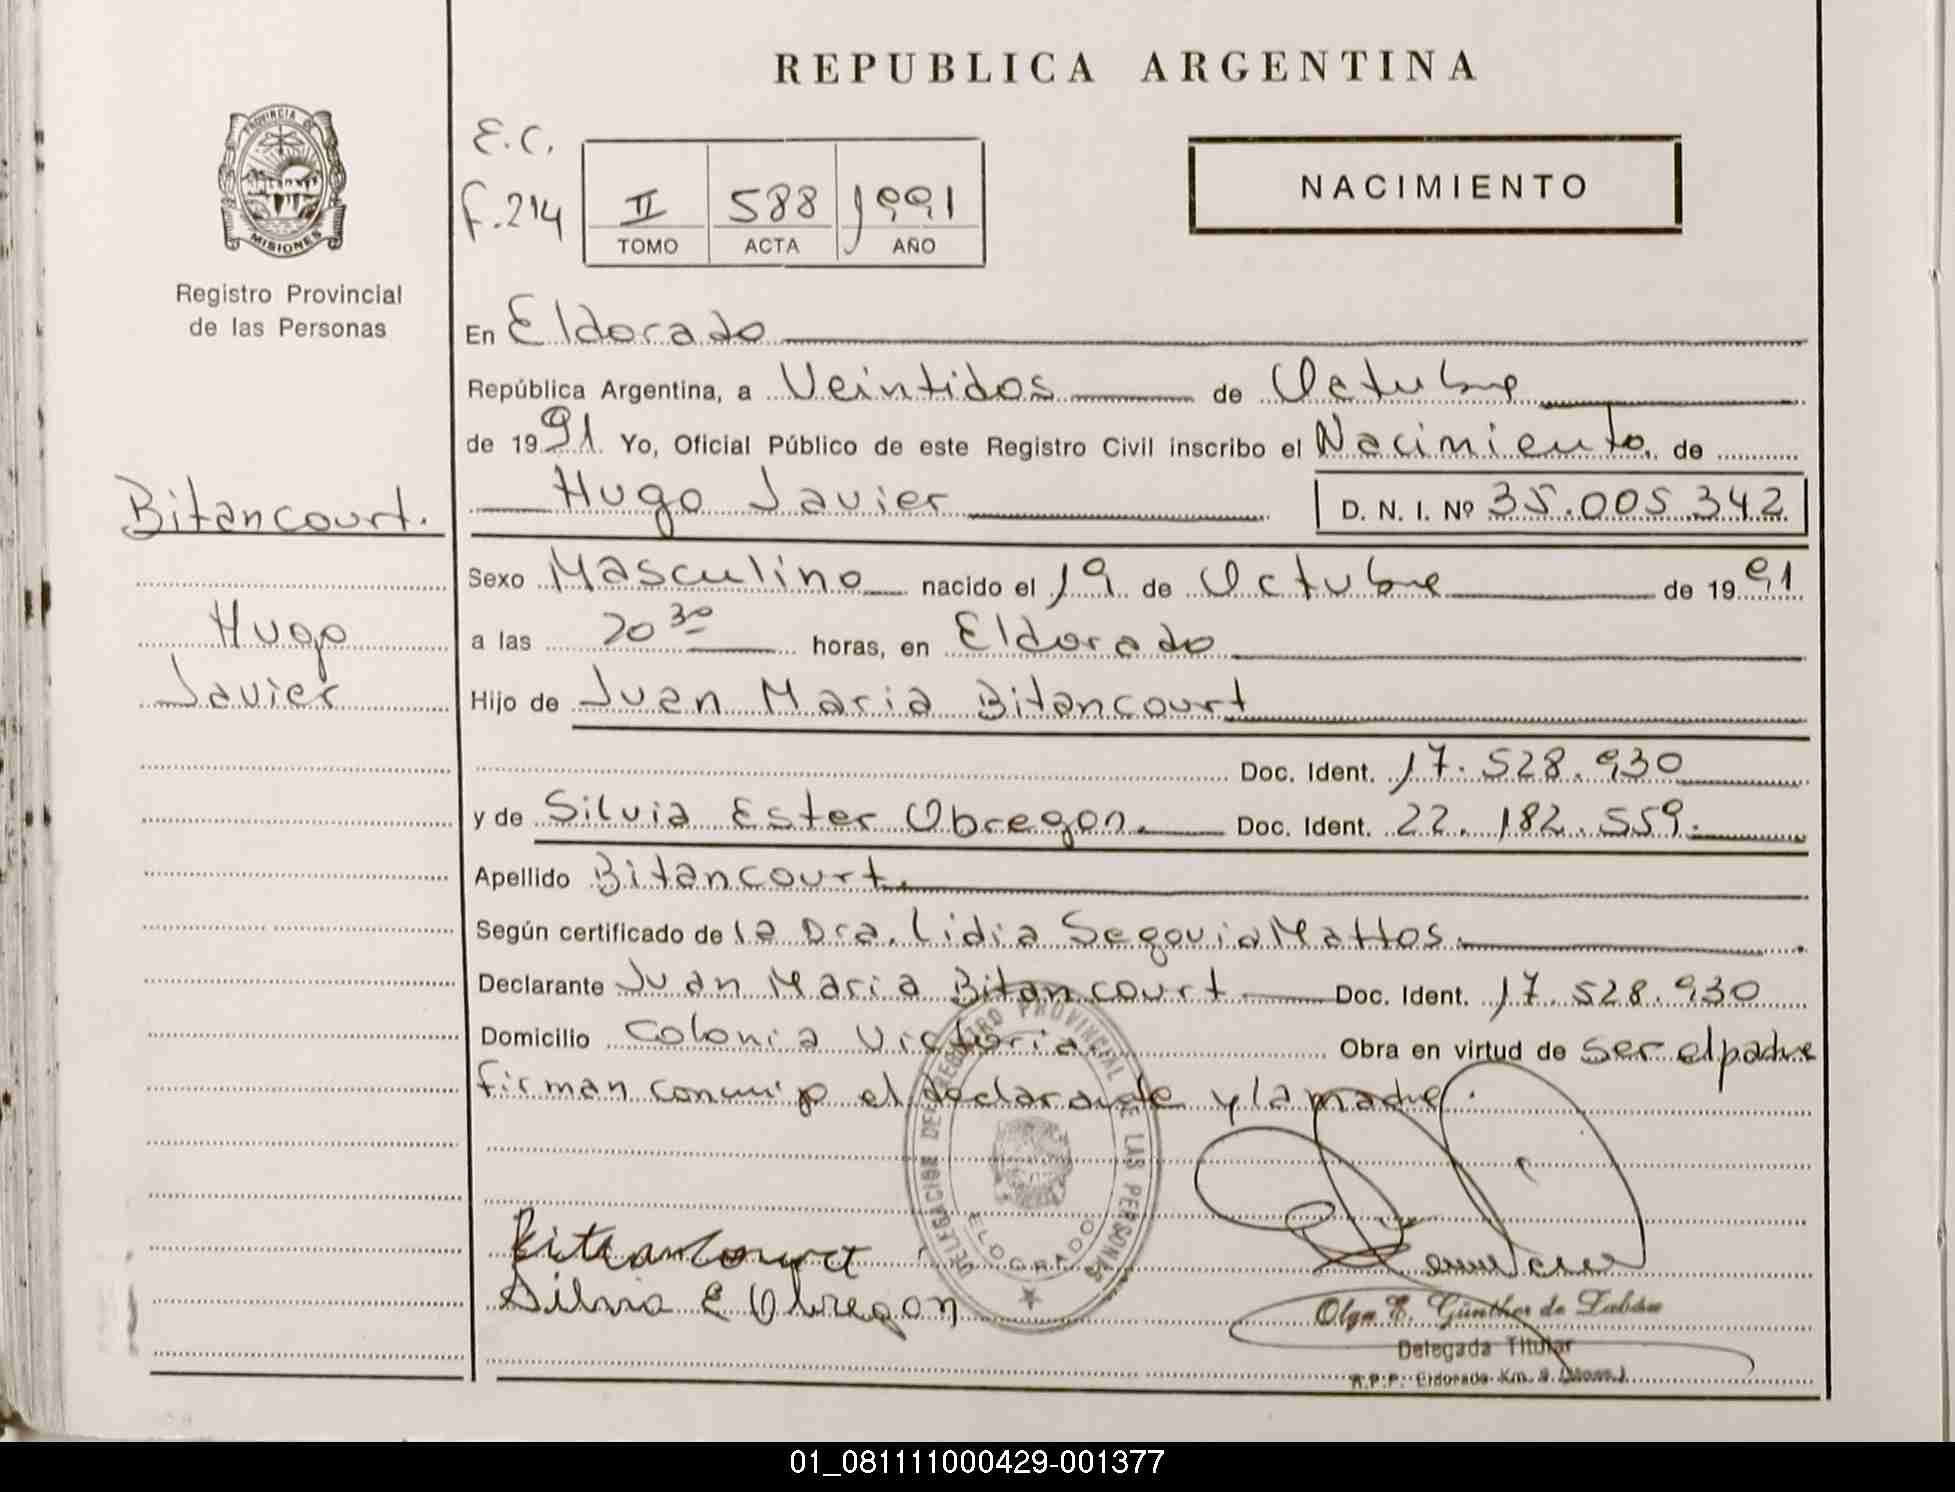 REPUBLICA ARGENTINA
PROVINCIA DE
MISIONES
Registro Provincial
de las Personas
E.C.
F.214
II 588 1991
TOMO ACTA AÑO
NACIMIENTO
En Eldorado
República Argentina, a Veintidos de Octubre
de 1991. Yo, Oficial Público de este Registro Civil inscribo el Nacimiento de
Bitancourt.
Hugo Javier
D. N. I. Nº 35.005.342
Sexo Masculino nacido el 19 de Octubre de 1991
Hugo
a las 20 30 horas, en Eldorado
Javier
Hijo de Juan Maria Bitancourt
Doc. Ident. 17.528.930
y de Silvia Ester Obregon. Doc. Ident. 22.182.559.
Apellido Bitancourt.
Según certificado de la Dra. Lidia Segovia Mattos.
Declarante Juan Maria Bitancourt Doc. Ident. 17.528.930
Domicilio Colonia Victoria. Obra en virtud de ser el padre
firman conmigo el declarante y la madre.
DELEGACION DEL REGISTRO PROVINCIAL DE LAS PERSONAS
ELDORADO
Bitancourt
Silvia E Obregon
Olga E. Günther de
Delegada Titular
R.P.P. Eldorado Km. 9 (Mnes.)
01_081111000429-001377